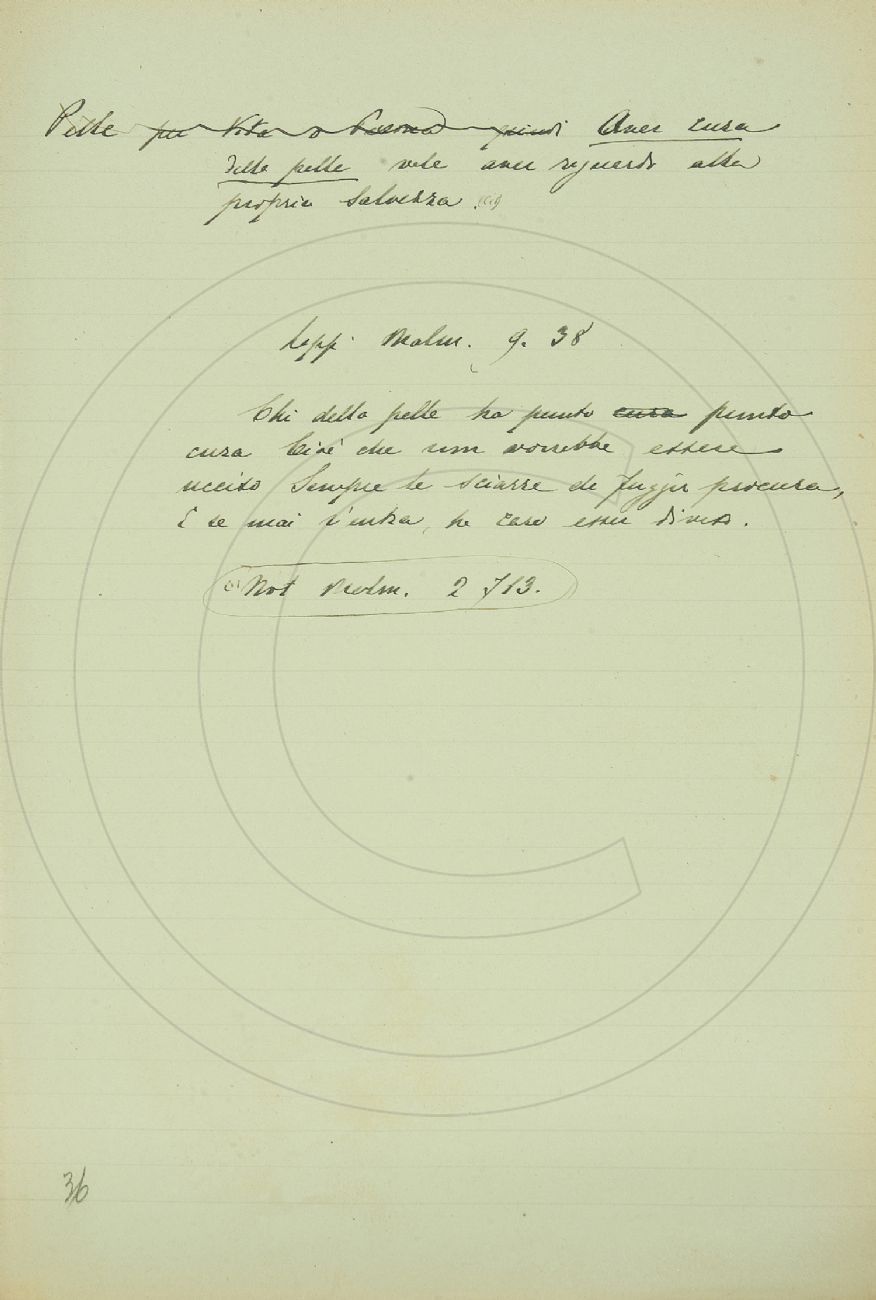 Pelle per Vita o Persona quindi Aver cura
della pelle vale aver riguardo alla
propria salvezza (a)
Lippi Malm. 9. 38
Chi della pelle ha punto cura punto
cura Cioè che non vorrebbe essere
ucciso Sempre le sciarre di fuggir procura,
E se mai v'entra, ha caro esser diviso.
(a) Not Malm. 2 713.
36